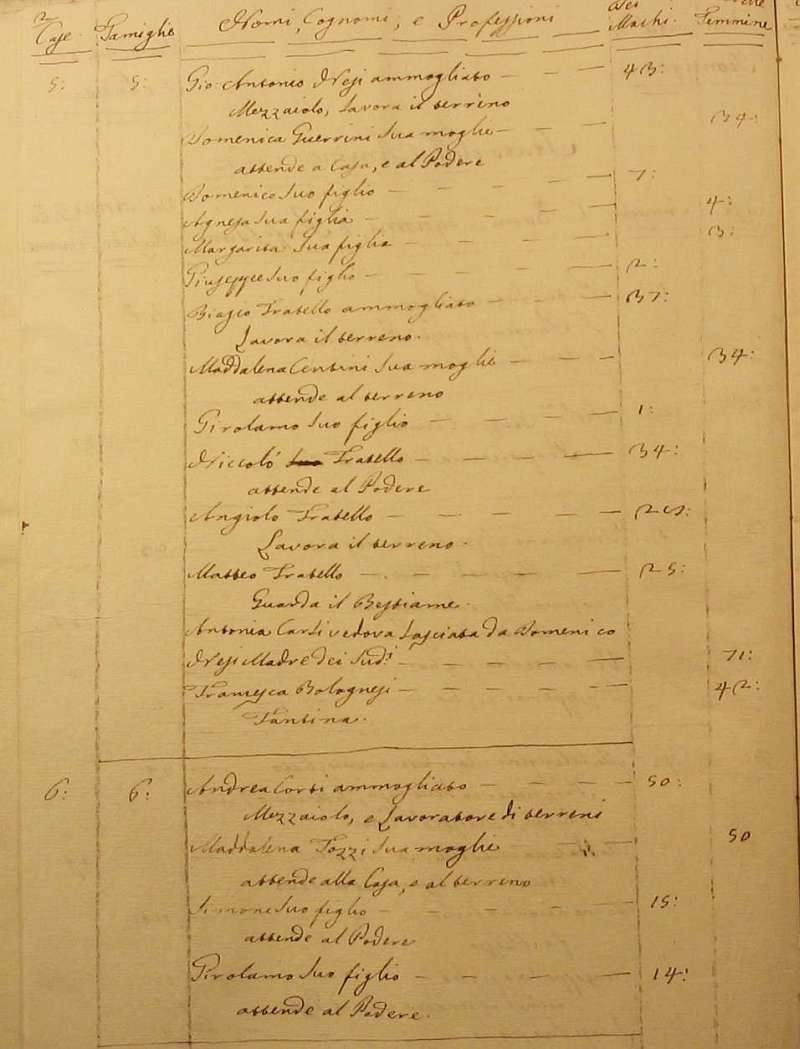 Case Famiglie Nomi, Cognomi, e Professioni Dei Maschi. Femmine
5: 5: Gio: Antonio Nesi ammogliato — — 43:
Mezzaiolo, Lavora il terreno
Domenica Guerrini Sua moglie — — — 34:
attende a Casa, e al Podere
Domenico Suo figlio — — — — — 7:
Agnesa Sua figlia — — — — — 4:
Margarita Sua figlia — — — — 3:
Giuseppe Suo figlio — — — — — 2:
Biagio Fratello ammogliato — — — 37:
Lavora il terreno.
Maddalena Centini Sua moglie — — — 34:
attende al terreno
Girolamo Suo figlio — — — — 1:
Niccolò Fratello — — — — 34:
attende al Podere
Angiolo Fratello — — — — —
Lavora il terreno.
Matteo Fratello — — — — — 25:
Guarda il Bestiame.
Antonia Carsi vedova Lasciata da Domenico
Nesi Madre dei Sud.i — — — — — 71:
Francesca Bolognesi — — — — — 42:
Fantina.
6: 6: Andrea Corsi ammogliato — — — 50:
Mezzaiolo, e Lavoratore di terreni
Maddalena Tozzi Sua moglie — — 50
attende alla Casa, e al terreno
Simone Suo figlio — — — — — 15:
attende al Podere
Girolamo Suo figlio — — — — 14:
attende al Podere.